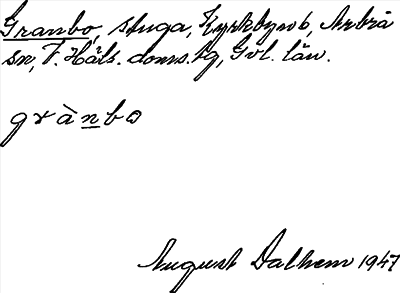 Granbo, stuga, Kyrkbyn 6, Arbrå
sn, F. Häls. doms.tg, Gvl. län.
grànbo
August Dalhem 1947